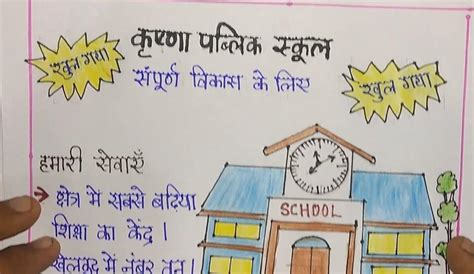 कृष्णा पब्लिक स्कूल
खुल गया
संपूर्ण विकास के लिए
खुल गया
हमारी सेवाएँ
→ क्षेत्र में सबसे बढ़िया
शिक्षा का केंद्र।
खेलकूद में नंबर वन।
SCHOOL